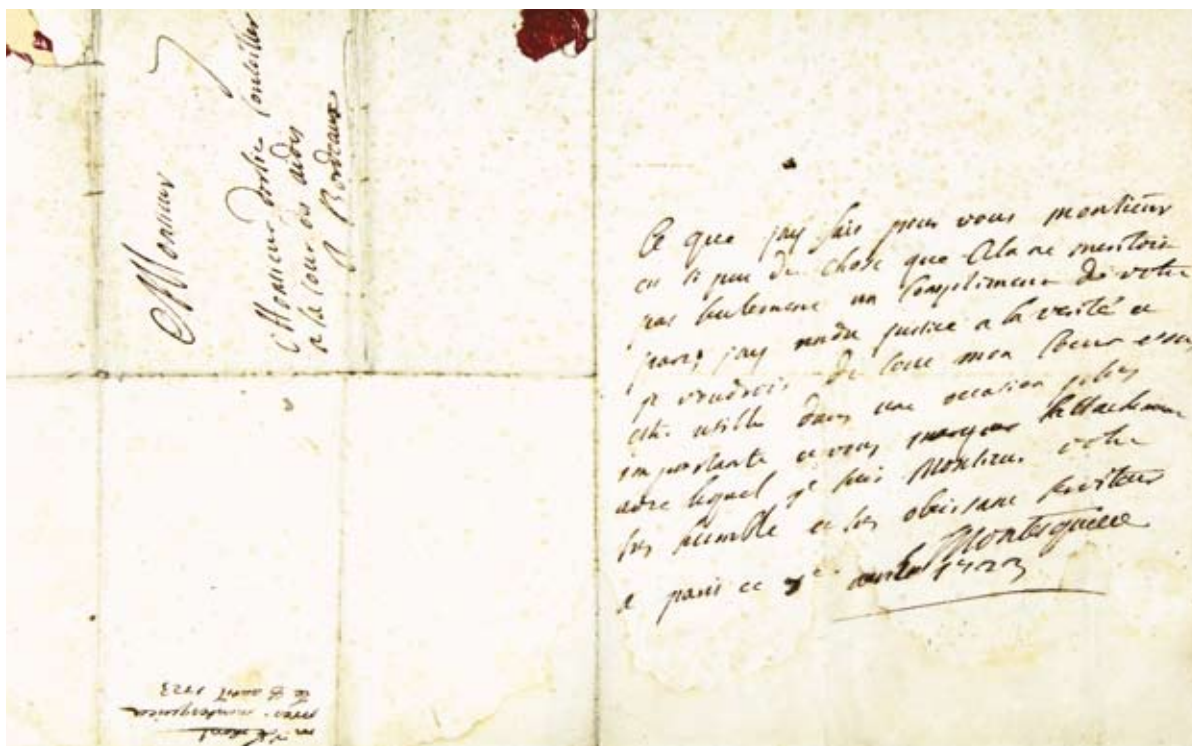 Monsieur
Monsieur
a la cour des aides
A Bordeaux
Ce que jay fait pour vous monsieur
est si peu de chose que cela ne meritoit
pas seulement un compliment de votre
part, jay rendu justice a la verité et
je voudrois de tout mon coeur vous
estre utille dans une occasion plus
importante et vous marquer lattachement
avec lequel je suis Monsieur votre
tres humble et tres obeissant serviteur
Montesquieu
a paris ce avril 1723
le 8 avril 1723